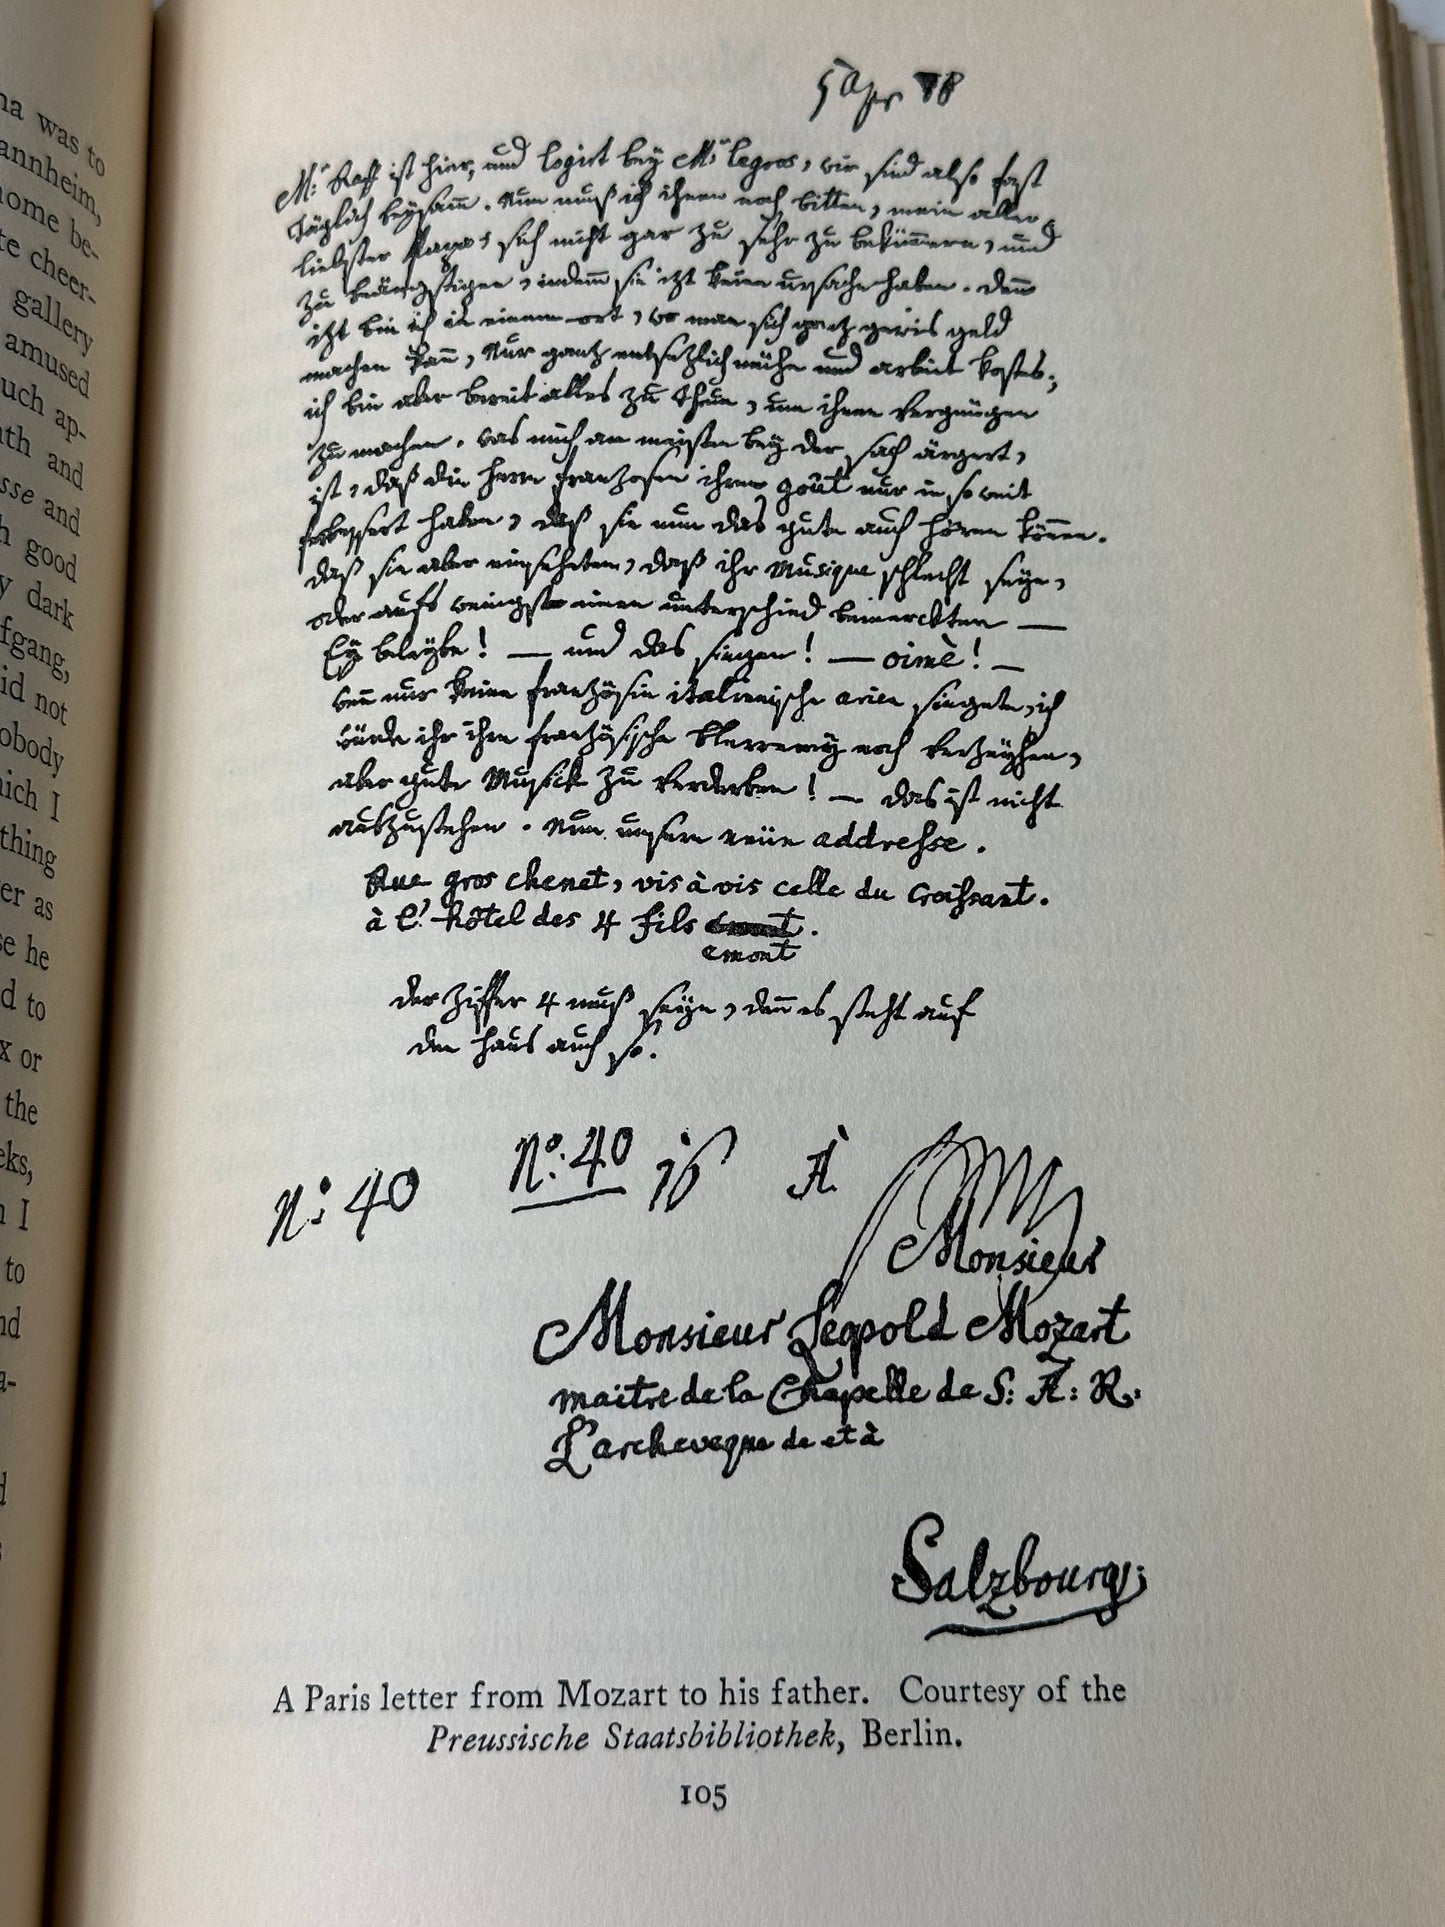 na was to
annheim,
ome be-
te cheer-
gallery
amused
uch ap-
th and
sse and
h good
y dark
fgang,
id not
obody
hich I
thing
er as
se he
d to
x or
the
eks,
n I
to
nd
a-
d
s
5 Apr 78
Mr: Raff ist hier, und logirt bey Mr: legros, wir sind also fast
täglich beysam̅. Nun muß ich ihnen noch bitten, mein aller-
liebster Papa, sich nicht gar zu sehr zu bekümmern, und
zu beängstigen, indem̅ sie izt keine ursache haben. den̅
izt bin ich in einem ort, wo man sich ganz gewis geld
machen kan̅, Nur gantz entsezlich mühe und arbeit kostes;
ich bin aber bereit alles zu thun, um ihnen vergnügen
zu machen. was mich am meisten bey der sach ärgert,
ist, daß die Herrn franzosen ihren goût nur in so weit
verbessert haben, daß sie nun das gute auch hören kön̅en.
daß sie aber einseheten, daß ihr Musique schlecht seye,
oder aufs wenigste einen unterschied bemerckten —
Ey beleybe! — und das singen! — oimè! —
wen̅ nur keine französin italienische arien singete, ich
würde ihr ihre französische Plererey noch verzeyhen,
aber gute Musick zu verderben! — das ist nicht
auszustehen. Nun unsere neüe addresse.
Rue gros chenet, vis à vis celle du Croissant.
à l'hôtel des 4 fils emont.
emont
der ziffer 4 muß seyn, den̅ es steht auf
den haus auch so.
No: 40
No: 40
16
À
Monsieur
Monsieur Leopold Mozart
maitre de la Chapelle de S: A: R:
L'archeveque de et à
Salzbourg:
A Paris letter from Mozart to his father. Courtesy of the
Preussische Staatsbibliothek, Berlin.
105